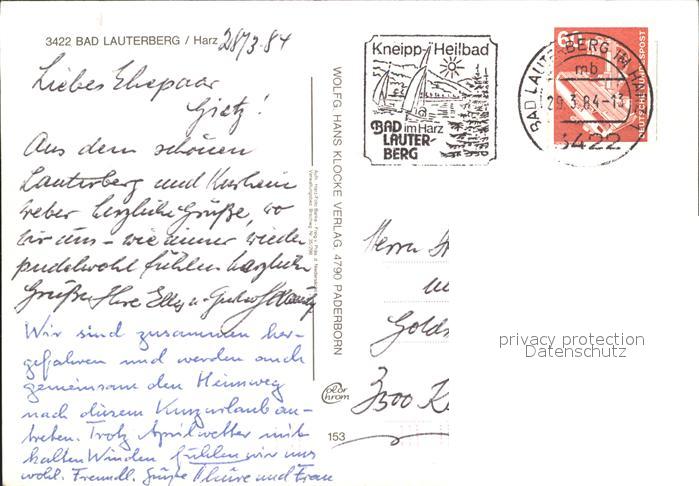 3422 BAD LAUTERBERG / Harz 28/3.84
Liebes Ehepaar
Gietz!
Aus dem schönen
Lauterberg und Kurheim
Weber herzliche Grüße, wo
wir uns – wie immer wieder
pudelwohl fühlen. Herzliche
Grüße Ihre Elly u. Gustav
Wir sind zusammen her-
gefahren und werden auch
gemeinsam den Heimweg
nach diesem Kurzurlaub an-
treten. Trotz Aprilwetter mit
kalten Winden fühlen wir uns
wohl. Freundl. Grüße Thüre und Frau
WOLFG. HANS KLOCKE VERLAG 4790 PADERBORN
Color
chrom
153
Kneipp-Heilbad
BAD im Harz
LAUTER-
BERG
60
DEUTSCHE BUNDESPOST
BAD LAUTERBERG IM HARZ
mb
29.3.84-13
3422
Herrn
Golds
3500 K
privacy protection
Datenschutz